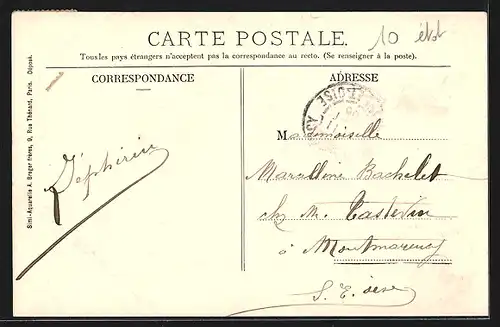 CARTE POSTALE.
10
Tous les pays étrangers n'acceptent pas la correspondance au recto. (Se renseigner à la poste).
CORRESPONDANCE
ADRESSE
Simi-Aquarelle A. Breger frères, 9, Rue Thénard, Paris. Déposé.
Zéphirin
Mademoiselle
Marcelline Bachelet
chez M. Castevin
à Montmorency
S. E. Oise